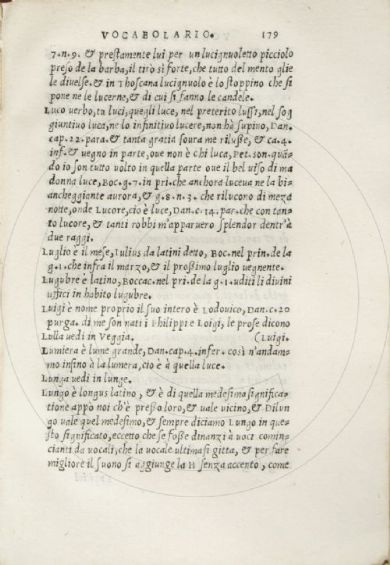 VOCABOLARIO. 179
7. n. 9. & prestamente lui per un lucignoletto picciolo
preso de la barba, il tirò si forte, che tutto del mento glie
le diuelse. & in Thoscana lucignuolo è lo stoppino che si
pone ne le lucerne, & di cui si fanno le candele.
Luco uerbo, tu luci, quegli luce, nel preterito lussi, nel sog
giuntiuo luca, ne lo infinitiuo lucere, non hà supino, Dan.
cap. 22. para. & tanta gratia soura me rilusse, & ca. 4.
inf. & uegno in parte, oue non è chi luca, Pet. son. quā-
do io son tutto uolto in quella parte oue il bel uiso di ma
donna luce, Boc. g. 7. in pri. che anchora luceua ne la bi-
ancheggiante aurora, & g. 8. n. 3. che rilucono di meza
notte, onde Lucore, cio è luce, Dan. c. 14. par. che con tan-
to lucore, & tanti robbi m'apparuero splendor dentr'à
due raggi.
Luglio è il mese, Iulius da latini detto, Boc. nel prin. de la
g. 1. che infra il marzo, & il prossimo luglio uegnente.
Lugubre è latino, Boccac. nel pri. de la g. 1. uditi li diuini
uffici in habito lugubre.
Luigi è nome proprio il suo intero è Lodouico, Dan. c. 20
purga. di me son nati i Philippi e Loigi, le prose dicono
Lulla uedi in Veggia. (Luigi.
Lumiera è lume grande, Dan. cap. 4. infer. così n'andam-
mo infino à la lumera, cio è à quella luce.
Lunga uedi in lunge.
Lungo è longus latino, & è di quella medesima significa-
tione appo noi ch'è presso loro, & uale uicino, & Dilun
go uale quel medesimo, & sempre diciamo Lungo in que-
sto significato, eccetto che se fosse dinanzi à uoci comin-
cianti da uocali, che la uocale ultima si gitta, & per fare
migliore il suono si aggiunge la H senza accento, come